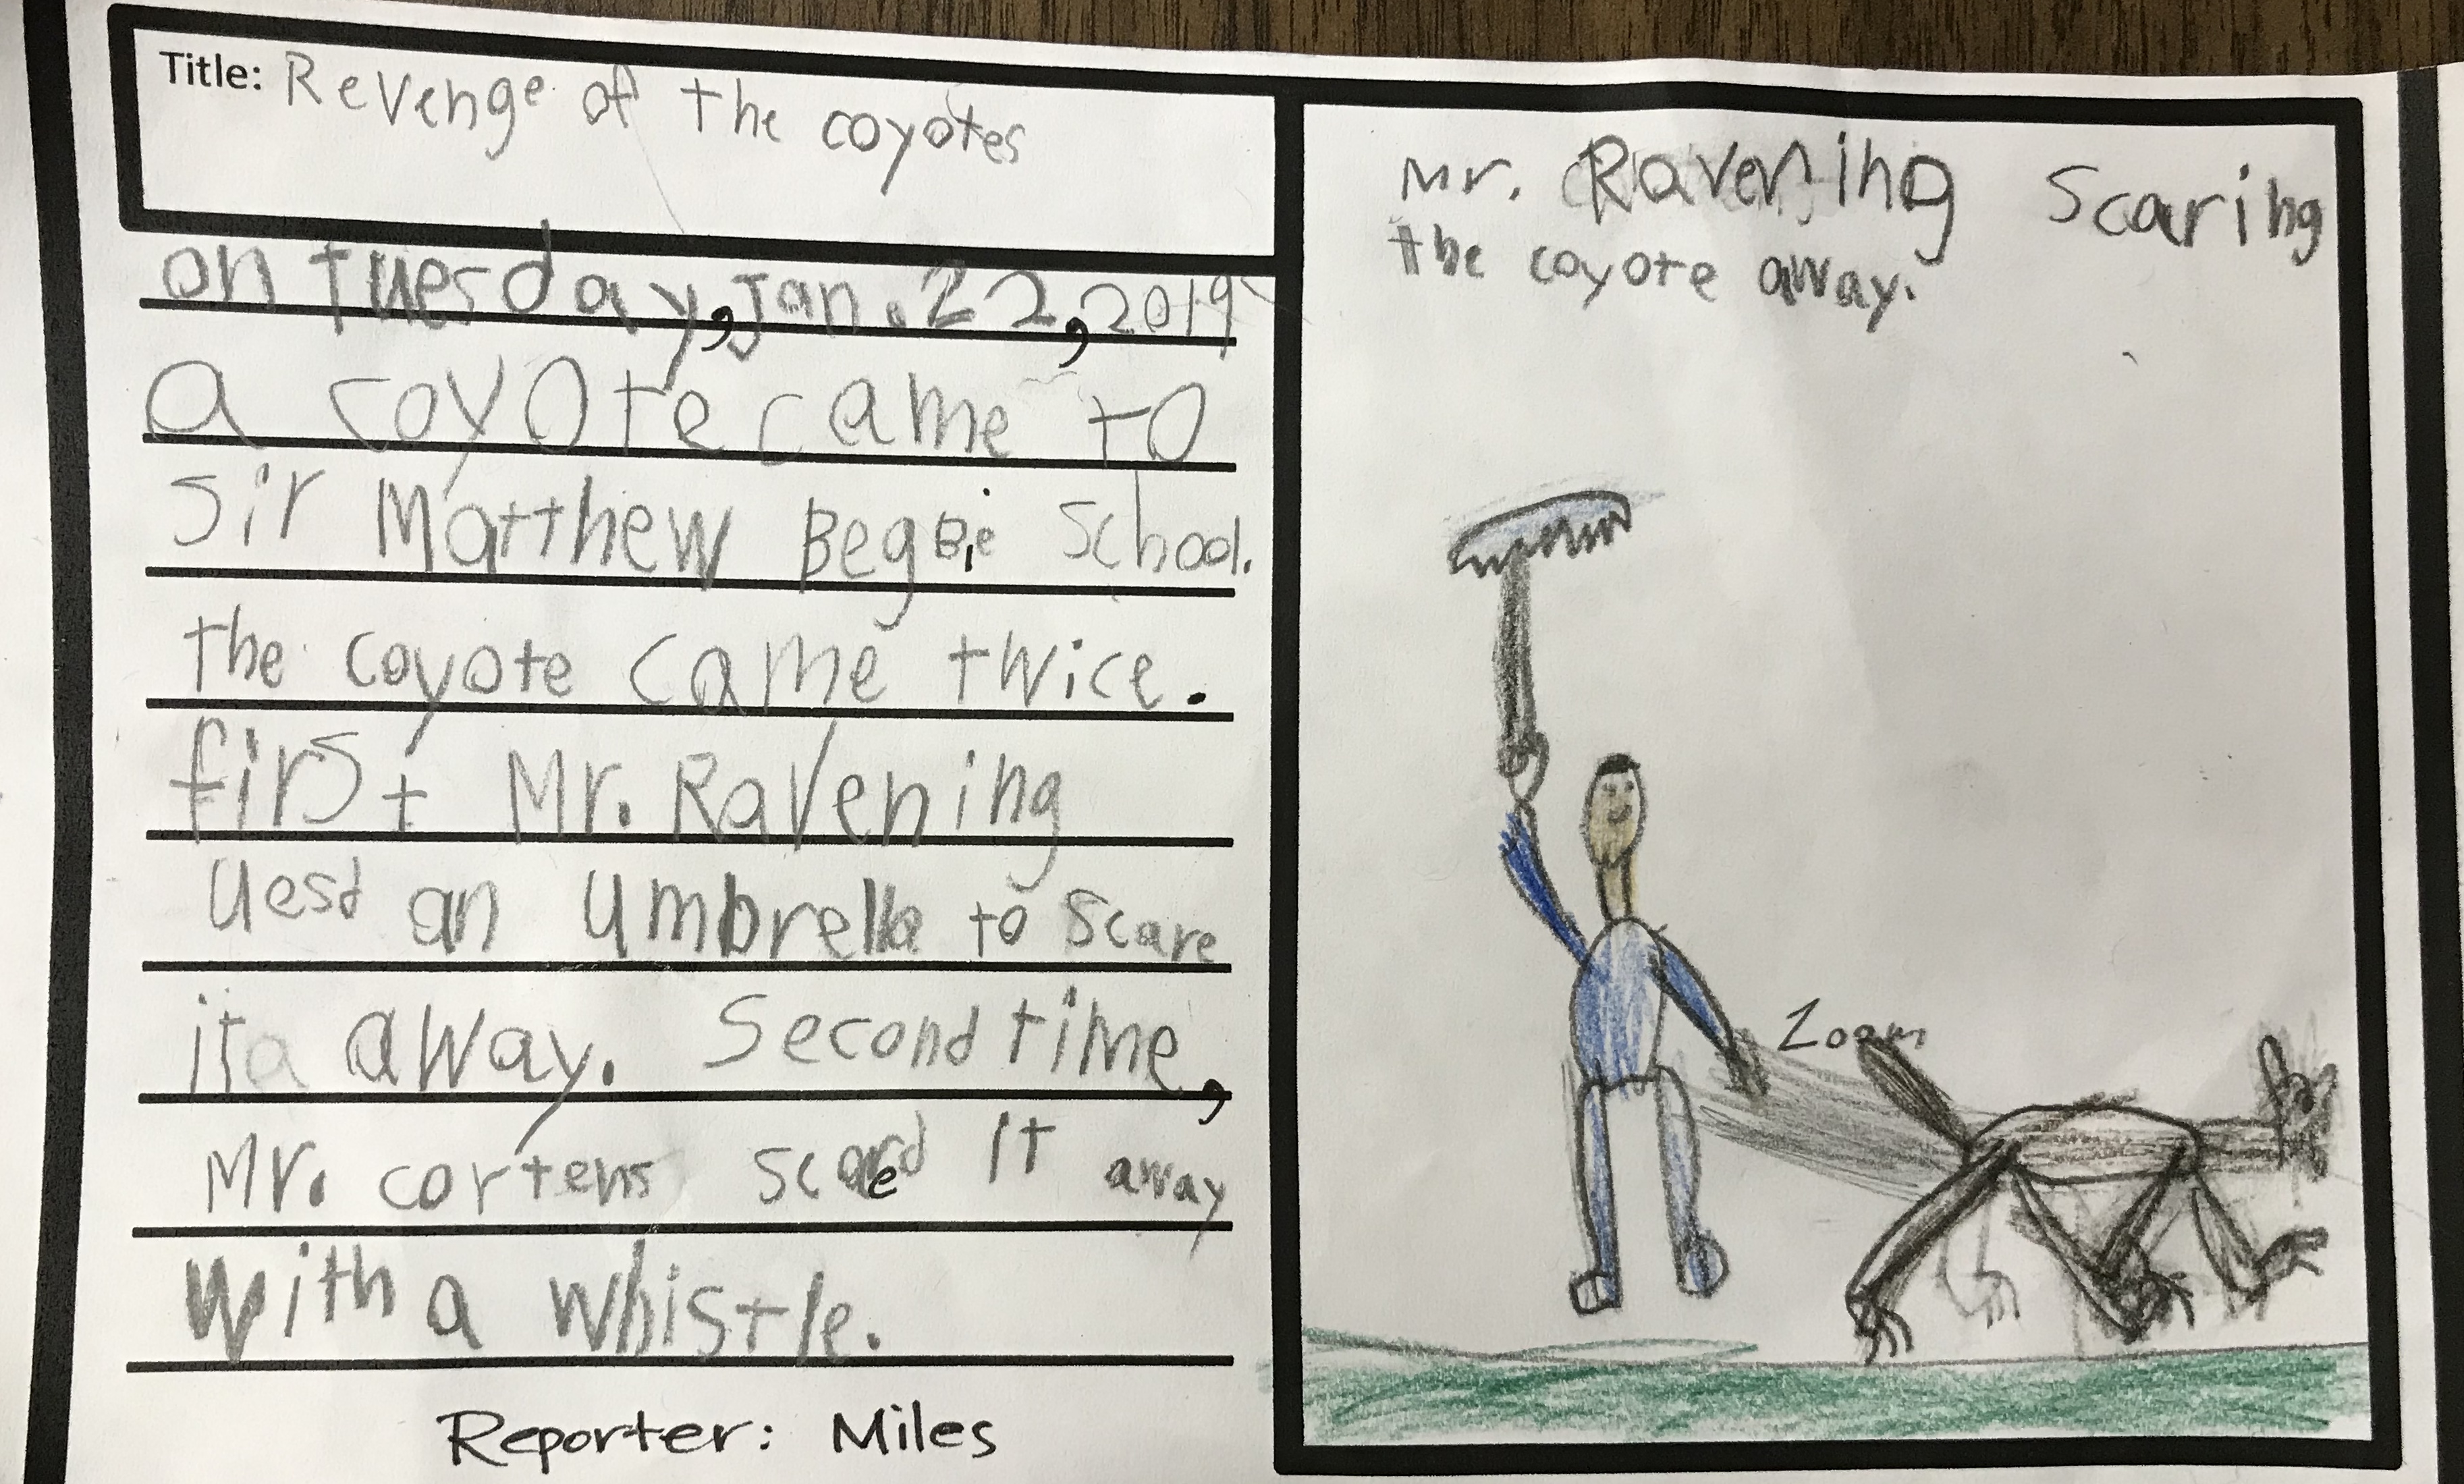 Title: Revenge of the coyotes
on Tuesday, Jan. 22, 2019
a coyote came to
Sir Matthew Begbie School.
the coyote came twice.
first Mr. Ravening
uesd an umbrella to scare
it a away. Second time,
Mr. cortens scared It away
with a whistle.
Reporter: Miles
Mr. Ravening Scaring
the coyote away.
Zoom